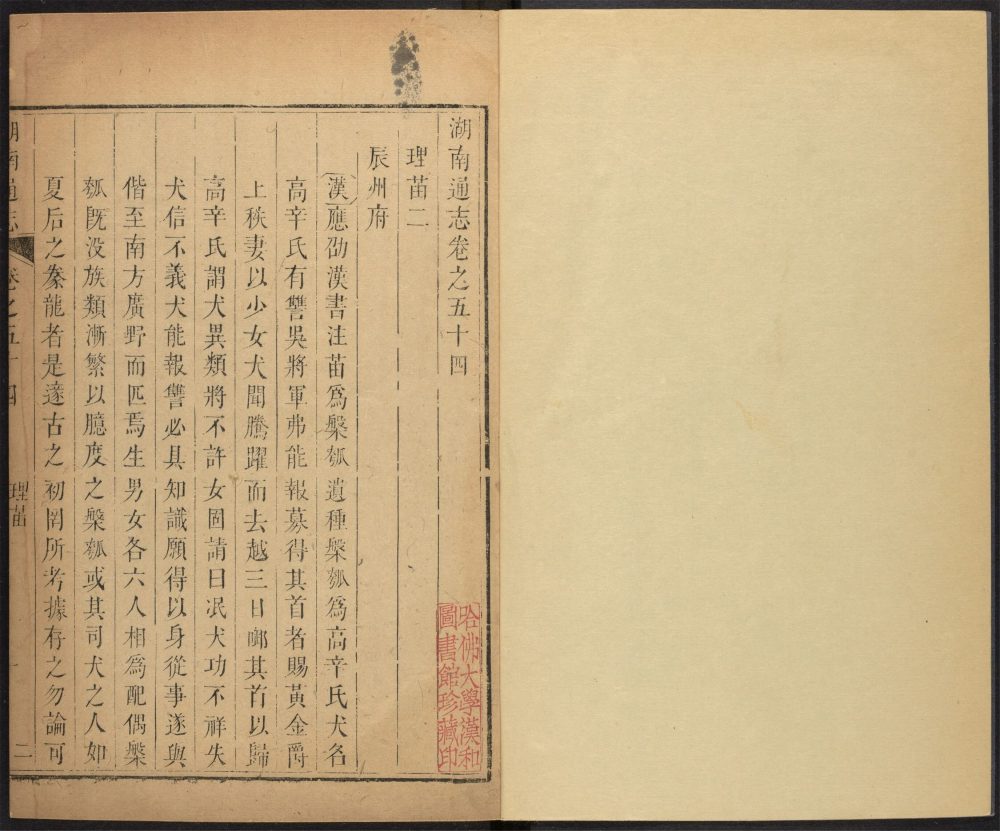 湖南通志卷之五十四
理苗二
辰州府
漢應劭漢書注苗爲槃瓠遺種槃瓠爲高辛氏犬名
高辛氏有讐吳將軍弗能報募得其首者賜黃金爵
上秩妻以少女犬聞騰躍而去越三日啣其首以歸
高辛氏謂犬異類將不許女固請曰泯犬功不祥失
犬信不義犬能報讐必具知識願得以身從事遂與
偕至南方廣野而匹焉生男女各六人相爲配偶槃
瓠旣没族類漸繁以臆度之槃瓠或其司犬之人如
夏后之豢龍者是邃古之初罔所考據存之勿論可
湖南通志
卷之五十四
理苗
二
哈佛大學漢和
圖書館珍藏印